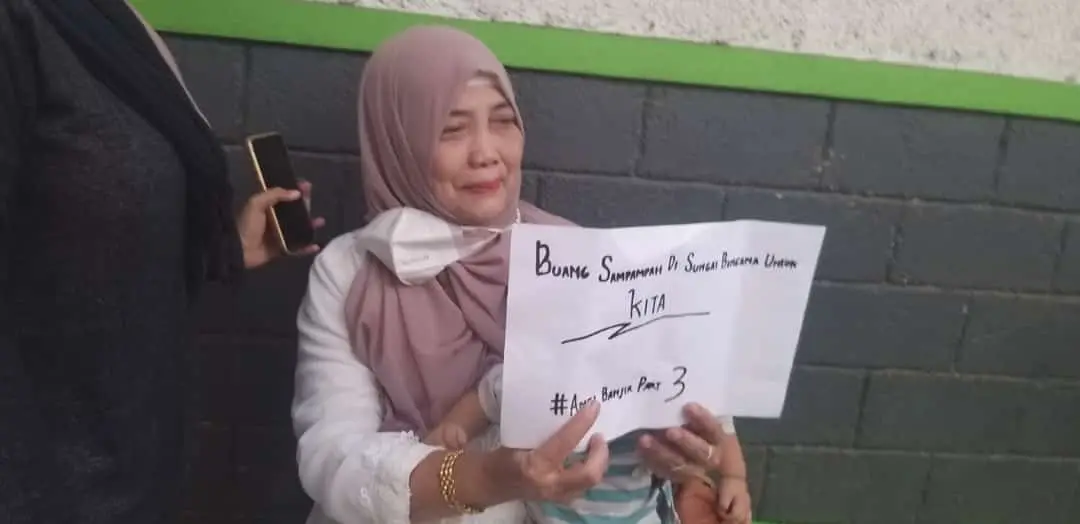 BUANG SAMPAMPAH DI SUNGAI BENCAMA UNTUK
KITA
# BANJIR PART 3